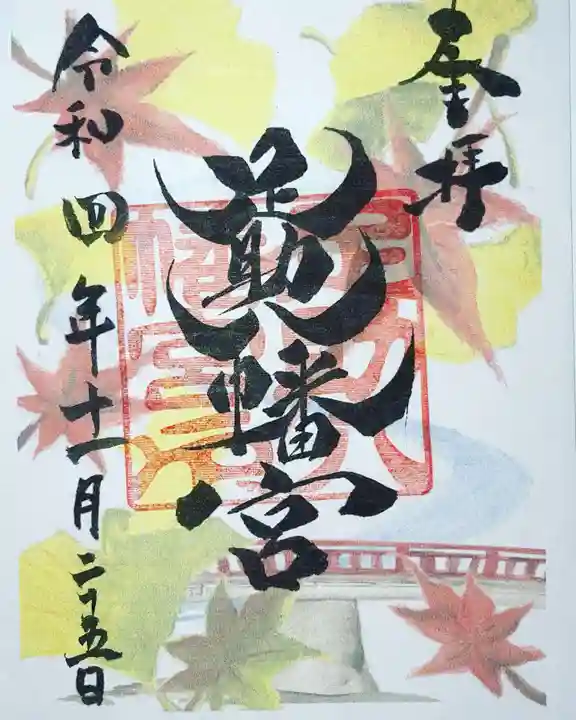 奉拝
足助八幡宮
令和四年十一月二十五日